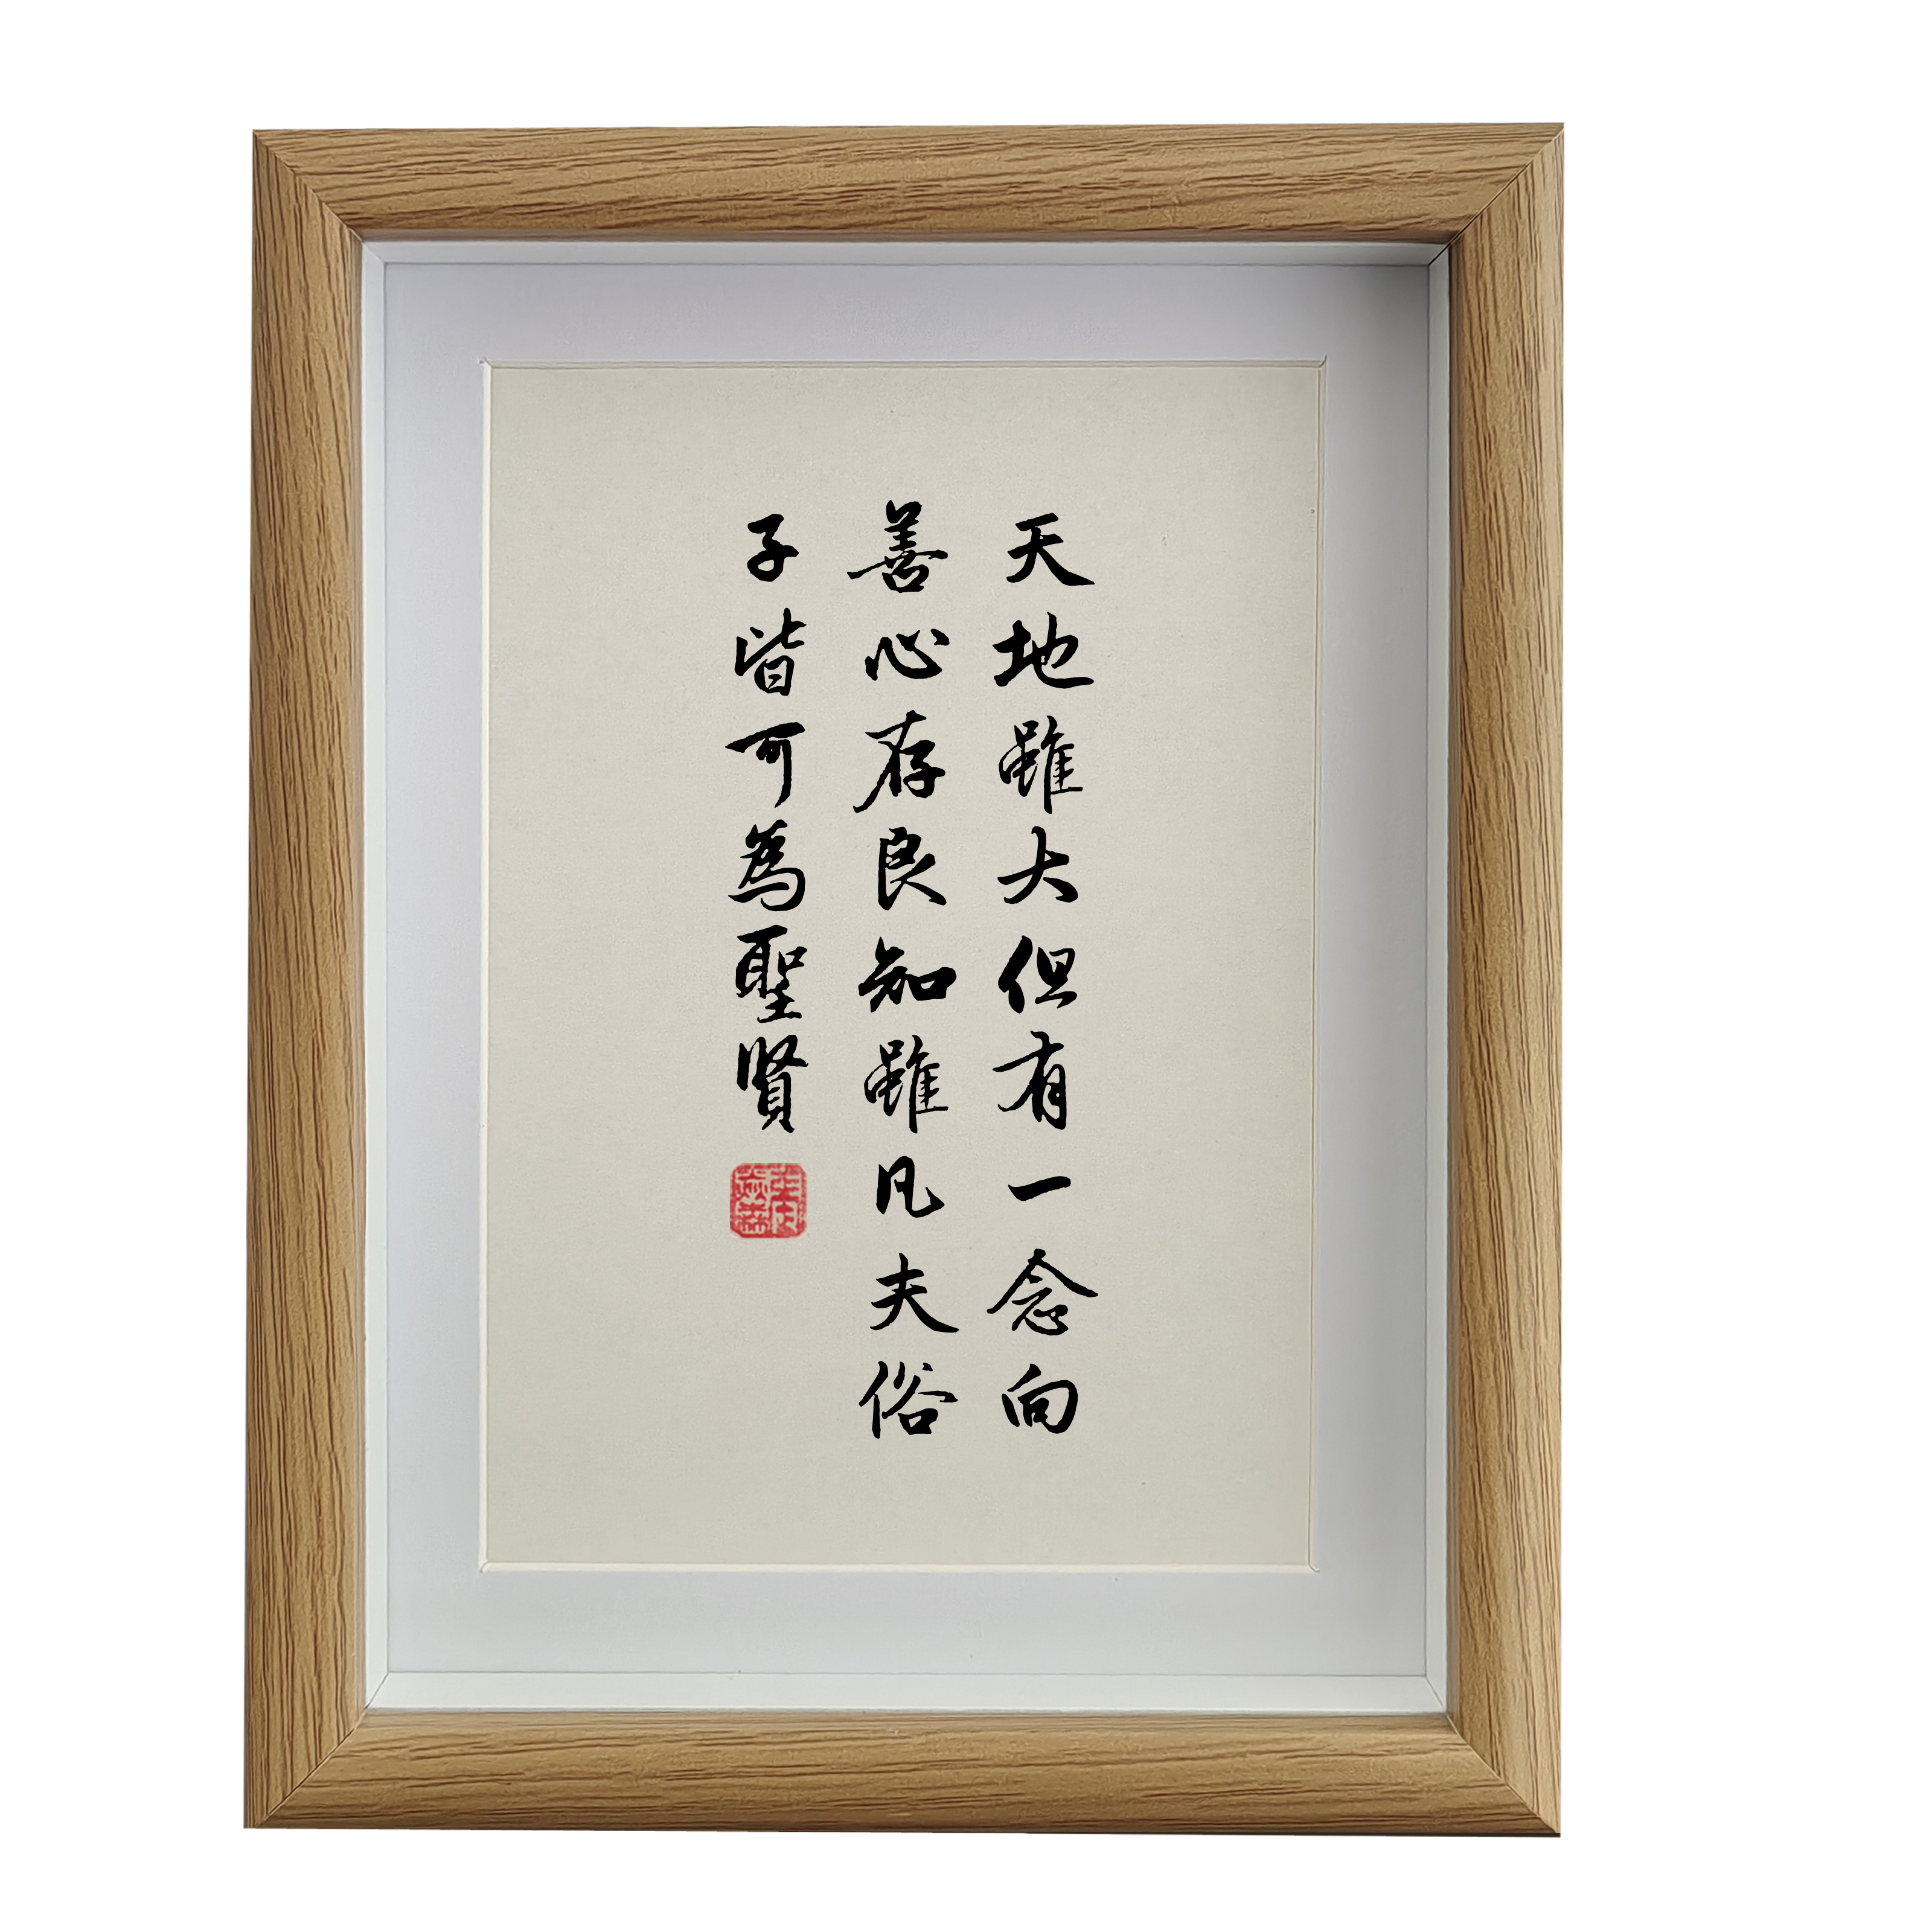 天地雖大但有一念向
善心存良知雖凡夫俗
子皆可為聖賢